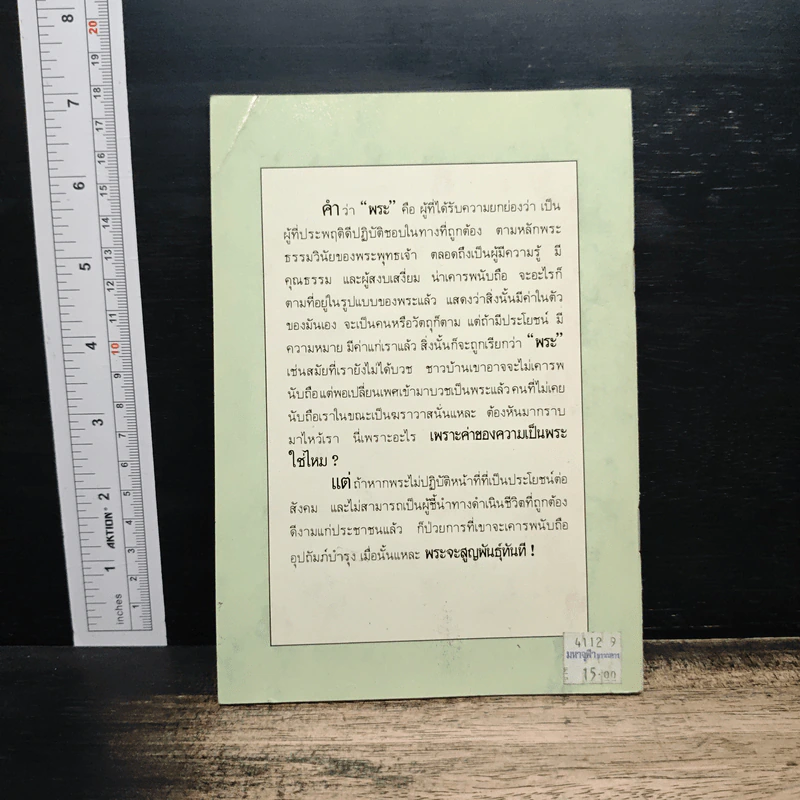 คำว่า “พระ” คือ ผู้ที่ได้รับความยกย่องว่า เป็น
ผู้ที่ประพฤติดีปฏิบัติชอบในทางที่ถูกต้อง ตามหลักพระ
ธรรมวินัยของพระพุทธเจ้า ตลอดถึงเป็นผู้มีความรู้ มี
คุณธรรม และผู้สงบเสงี่ยม น่าเคารพนับถือ จะอะไรก็
ตามที่อยู่ในรูปแบบของพระแล้ว แสดงว่าสิ่งนั้นมีค่าในตัว
ของมันเอง จะเป็นคนหรือวัตถุก็ตาม แต่ถ้ามีประโยชน์ มี
ความหมาย มีค่าแก่เราแล้ว สิ่งนั้นก็จะถูกเรียกว่า “พระ”
เช่นสมัยที่เรายังไม่ได้บวช ชาวบ้านเขาอาจจะไม่เคารพ
นับถือ แต่พอเปลี่ยนเพศเข้ามาบวชเป็นพระแล้ว คนที่ไม่เคย
นับถือเราในขณะเป็นฆราวาสนั่นแหละ ต้องหันมากราบ
มาไหว้เรา นี่เพราะอะไร เพราะค่าของความเป็นพระ
ใช่ไหม ?
แต่ ถ้าหากพระไม่ปฏิบัติหน้าที่ที่เป็นประโยชน์ต่อ
สังคม และไม่สามารถเป็นผู้ชี้นำทางดำเนินชีวิตที่ถูกต้อง
ดีงามแก่ประชาชนแล้ว ก็ป่วยการที่เขาจะเคารพนับถือ
อุปถัมภ์บำรุง เมื่อนั้นแหละ พระจะสูญพันธุ์ทันที !
4112 9
มหาจุฬาบรรณาคาร
15.00
8
7
6
5
4
3
2
1
inches
AKTION
20
19
18
17
16
15
14
13
12
11
10
9
8
7
6
5
4
3
2
1